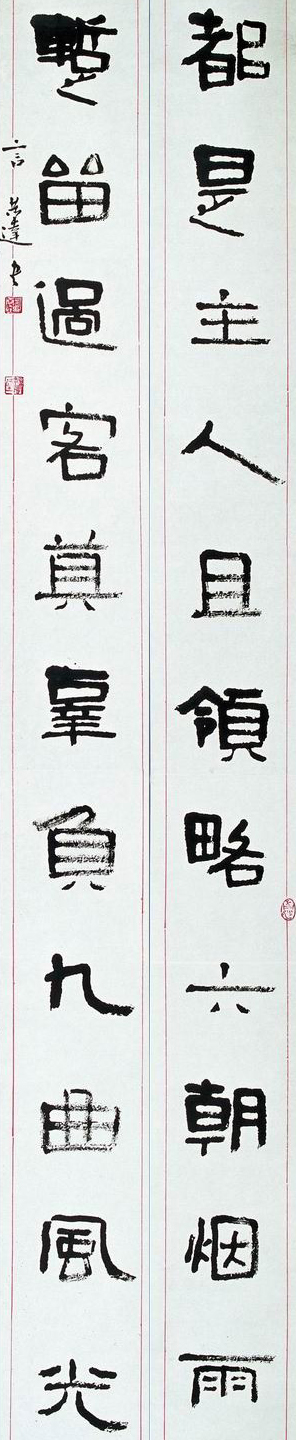 都是主人且領略六朝烟雨
暫留過客莫辜負九曲風光
言恭達书